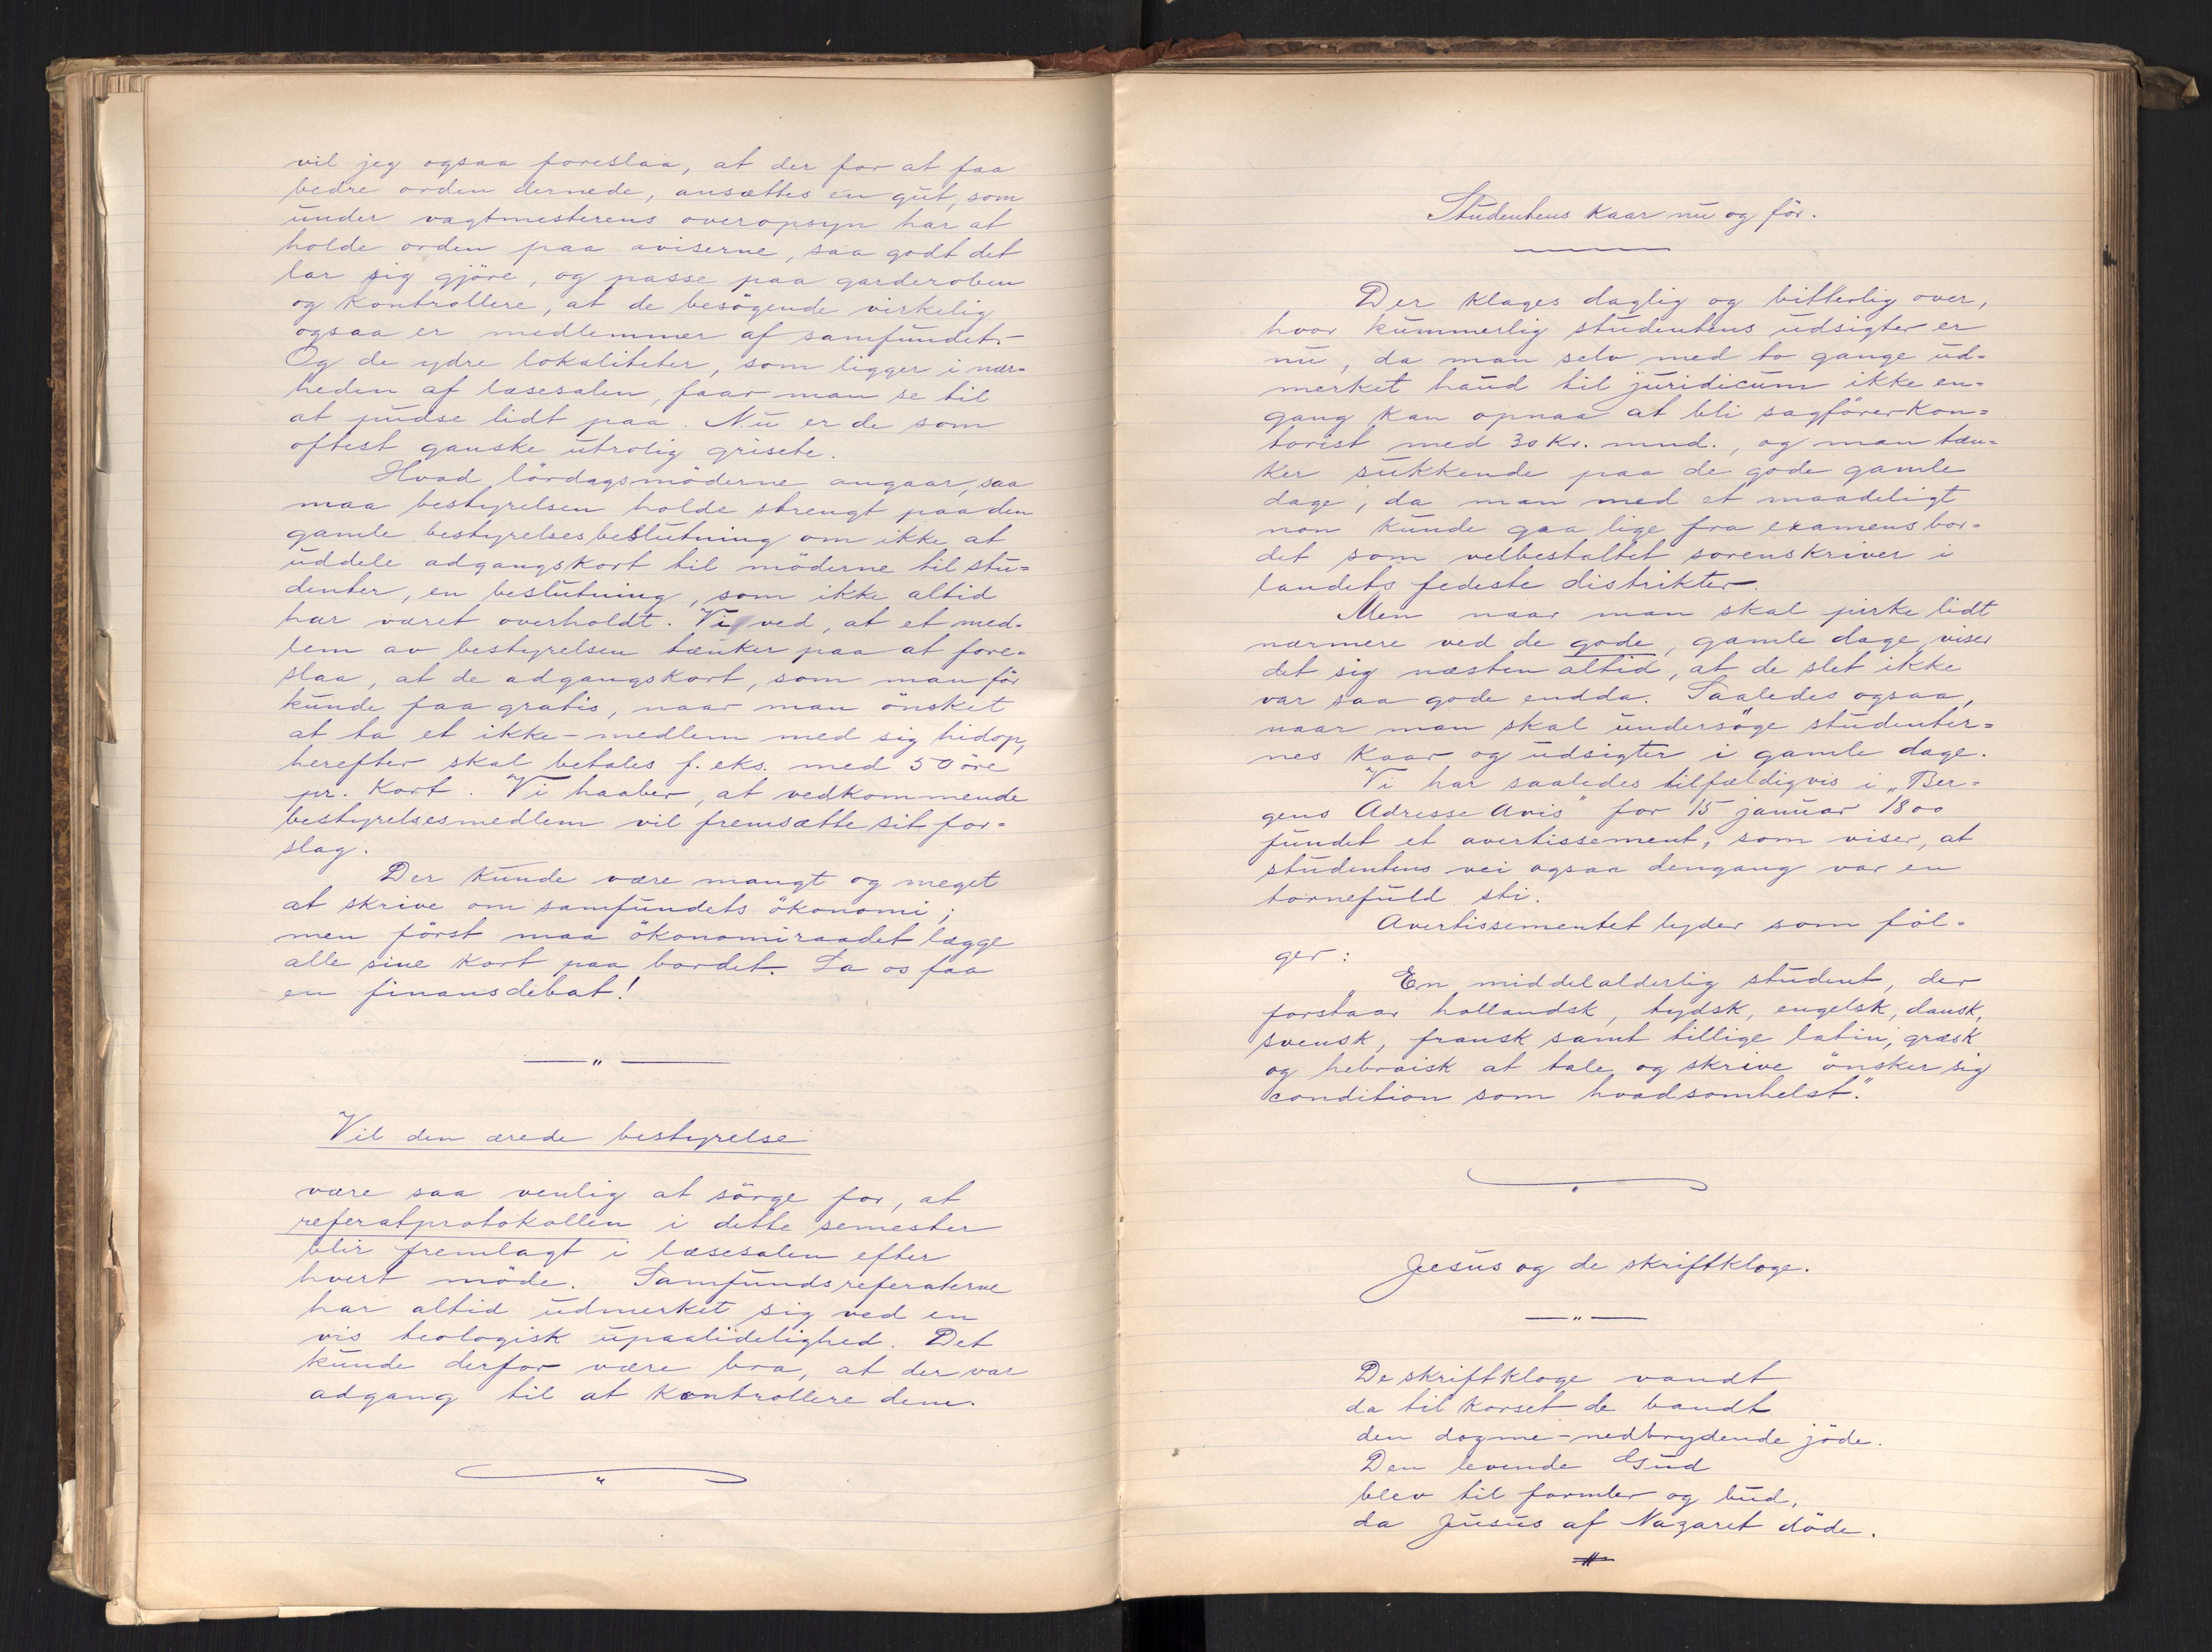 vil jeg ogsaa foreslaa, at der for at faa
bedre orden dernede, ansættes en gut, som
under vagtmesterens overopsyn har at
holde orden paa aviserne, saa godt det
lar sig gjöre, og passe paa garderoben
og kontrollere, at de besögende virkelig
ogsaa er medlemmer af samfundet.-
Og de ydre lokaliteter, som ligger i nær-
heden af læsesalen, faar man se til
at pudse lidt paa. Nu er de som
oftest ganske utrolig grisete.
Hvad lördagsmöderne angaar, saa
maa bestyrelsen holde strengt paa den
gamle bestyrelsesbeslutning om ikke at
uddele adgangskort til möderne til stu=
denter, en beslutning, som ikke altid
har været overholdt. Vi ved, at et med-
lem av bestyrelsen tænker paa at fore-
slaa, at de adgangskort, som man för
kunde faa gratis, naar man önsket
at ta et ikke-medlem med sig hidop,
herefter skal betales f. eks. med 50 öre
pr. kort. Vi haaber, at vedkommende
bestyrelsesmedlem vil fremsætte sit for=
slag.
Der kunde være mangt og meget
at skrive om samfundets ökonomi;
men först maa ökonomiraadet lægge
alle sine kort paa bordet. La os faa
en finansdebat!
— „ —
Vil den ærede bestyrelse
være saa venlig at sörge for, at
referatprotokollen i dette semester
blir fremlagt i læsesalen efter
hvert möde. Samfundsreferaterne
har altid udmerket sig ved en
vis teologisk upaalidelighed. Det
kunde derfor være bra, at der var
adgang til at kontrollere dem.
Studentens kaar nu og för.
Der klages daglig og bitterlig over,
hvor kummerlig studentens udsigter er
nu, da man selv med to gange ud=
merket haud til juridicum ikke en=
gang kan opnaa at bli sagförerkon=
torist med 30 Kr. mnd., og man tæn=
ker sukkende paa de gode gamle
dage, da man med et maadeligt
non kunde gaa lige fra examensbor=
det som velbestaltet sorenskriver i
landets fedeste distrikter.
Men naar man skal pirke lidt
nærmere ved de gode, gamle dage, viser
det sig næsten altid, at de slet ikke
var saa gode endda. Saaledes ogsaa,
naar man skal undersöge studenter=
nes kaar og udsigter i gamle dage.
Vi har saaledes tilfældigvis i „Ber=
gens Adresse Avis" for 15 januar 1800
fundet et avertissement, som viser, at
studentens vei ogsaa dengang var en
tornefuld sti.
Avertissementet lyder som föl-
ger:
„En middelalderlig student, der
forstaar hollandsk, tydsk, engelsk, dansk,
svensk, fransk samt tillige latin, græsk
og hebraisk at tale og skrive önsker sig
condition som hvadsomhelst."
Jesus og de skriftkloge.
— „ —
De skriftkloge vandt
da til korset de bandt
den dogme-nedbrydende jöde.
Den levende Gud
blev til formler og bud,
da Jusus af Nazaret döde.